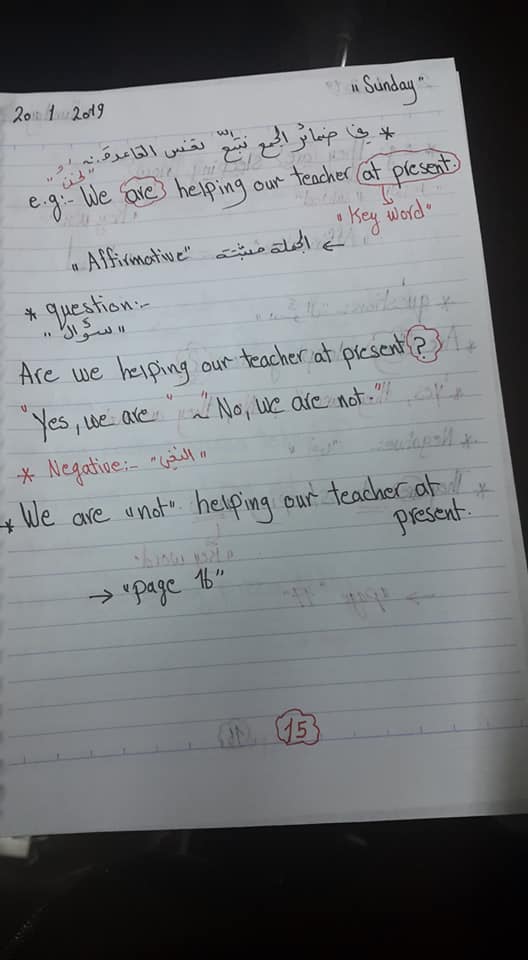 20 1 2019
"Sunday"
* في ضمائر الجمع نتبع نفس القاعدة
"نحن"
e.g:- We are helping our teacher at present.
"Key word"
"Affirmative" الجملة مثبتة ←
* question:-
"سؤال"
Are we helping our teacher at present?
"Yes, we are" ~ "No, we are not."
* Negative:- "النفي"
* We are "not" helping our teacher at
present.
→ "page 16"
15